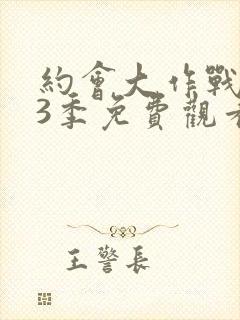 約會大作戰
3季免費觀看
王警長